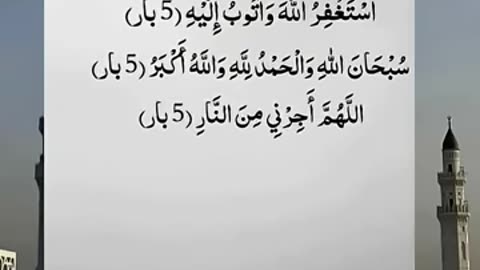 اَسْتَغْفِرُ اللهَ وَاَتُوبُ إِلَيْهِ (5 بار)
سُبْحَانَ اللهِ وَالْحَمْدُ لِلَّهِ وَاللَّهُ أَكْبَرُ (5 بار)
اللَّهُمَّ أَجِرْنِي مِنَ النَّارِ (5 بار)